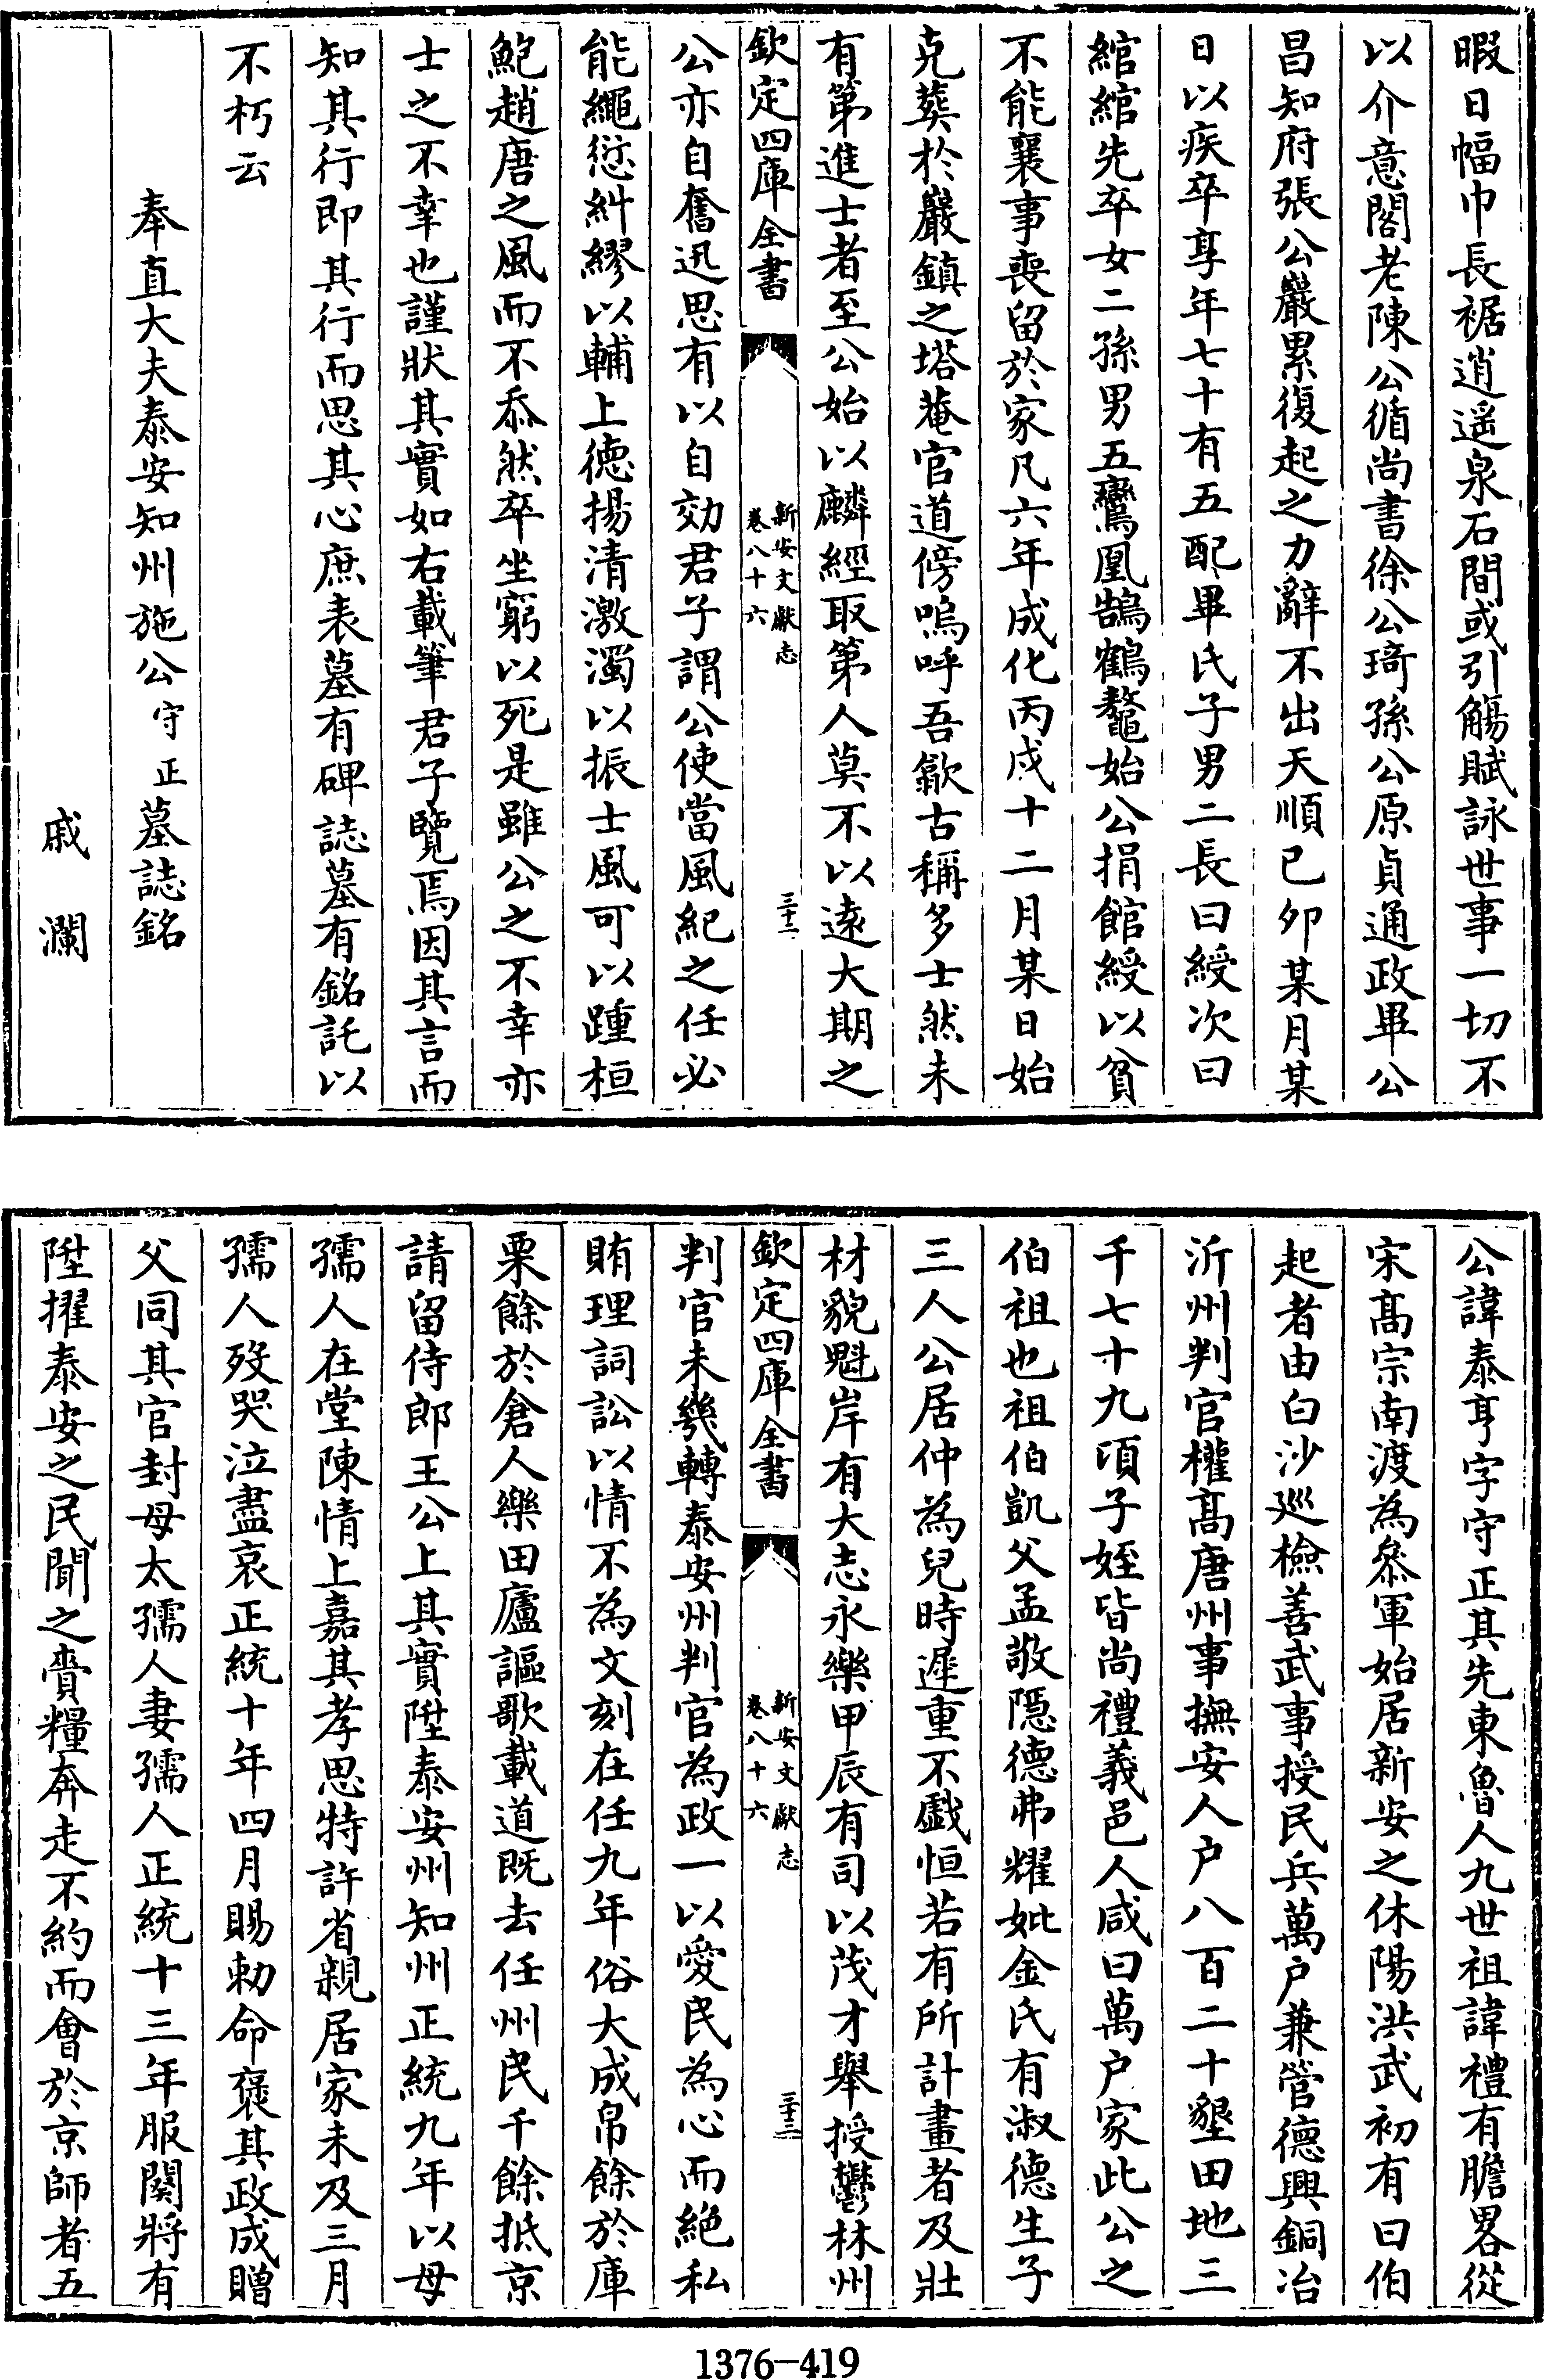 暇日幅巾長裾逍遥泉石間或引觴賦詠世事一切不
以介意閣老陳公循尚書徐公琦孫公原貞通政畢公
昌知府張公巖累復起之力辭不出天順己夘某月某
日以疾卒享年七十有五配畢氏子男二長曰綬次曰
綰綰先卒女二孫男五鸞凰鵠鶴鼇始公捐館綬以貧
不能襄事喪留於家凡六年成化丙戍十二月某日始
克葬於巖鎮之塔菴官道傍嗚呼吾歙古稱多士然未
有第進士者至公始以麟經取第人莫不以遠大期之
欽定四庫全書
新安文獻志
卷八十六
三十二
公亦自奮迅思有以自効君子謂公使當風紀之任必
能繩愆糾繆以輔上德揚清激濁以振士風可以踵桓
鮑趙唐之風而不忝然卒坐窮以死是雖公之不幸亦
士之不幸也謹狀其實如右載筆君子覽焉因其言而
知其行即其行而思其心庶表墓有碑誌墓有銘託以
不朽云
奉直大夫泰安知州施公守正墓誌銘
戚瀾
公諱泰亨字守正其先東魯人九世祖諱禮有膽畧從
宋髙宗南渡為叅軍始居新安之休陽洪武初有曰伯
起者由白沙巡檢善武事授民兵萬户兼管德興銅冶
沂州判官權髙唐州事撫安人户八百二十墾田地三
千七十九頃子姪皆尚禮義邑人咸曰萬户家此公之
伯祖也祖伯凱父孟敬隠德弗耀妣金氏有淑德生子
三人公居仲為兒時遲重不戲恒若有所計畫者及壯
材貌魁岸有大志永樂甲辰有司以茂才舉授鬱林州
欽定四庫全書
新安文獻志
卷八十六
三十三
判官未幾轉泰安州判官為政一以愛民為心而絶私
賄理詞訟以情不為文刻在任九年俗大成帛餘於庫
粟餘於倉人樂田廬謳歌載道既去任州民千餘抵京
請留侍郎王公上其實陞泰安州知州正統九年以母
孺人在堂陳情上嘉其孝思特許省親居家未及三月
孺人歿哭泣盡哀正統十年四月賜勅命褒其政成贈
父同其官封母太孺人妻孺人正統十三年服闋將有
陞擢泰安之民聞之賫糧奔走不約而會於京師者五
1376-419